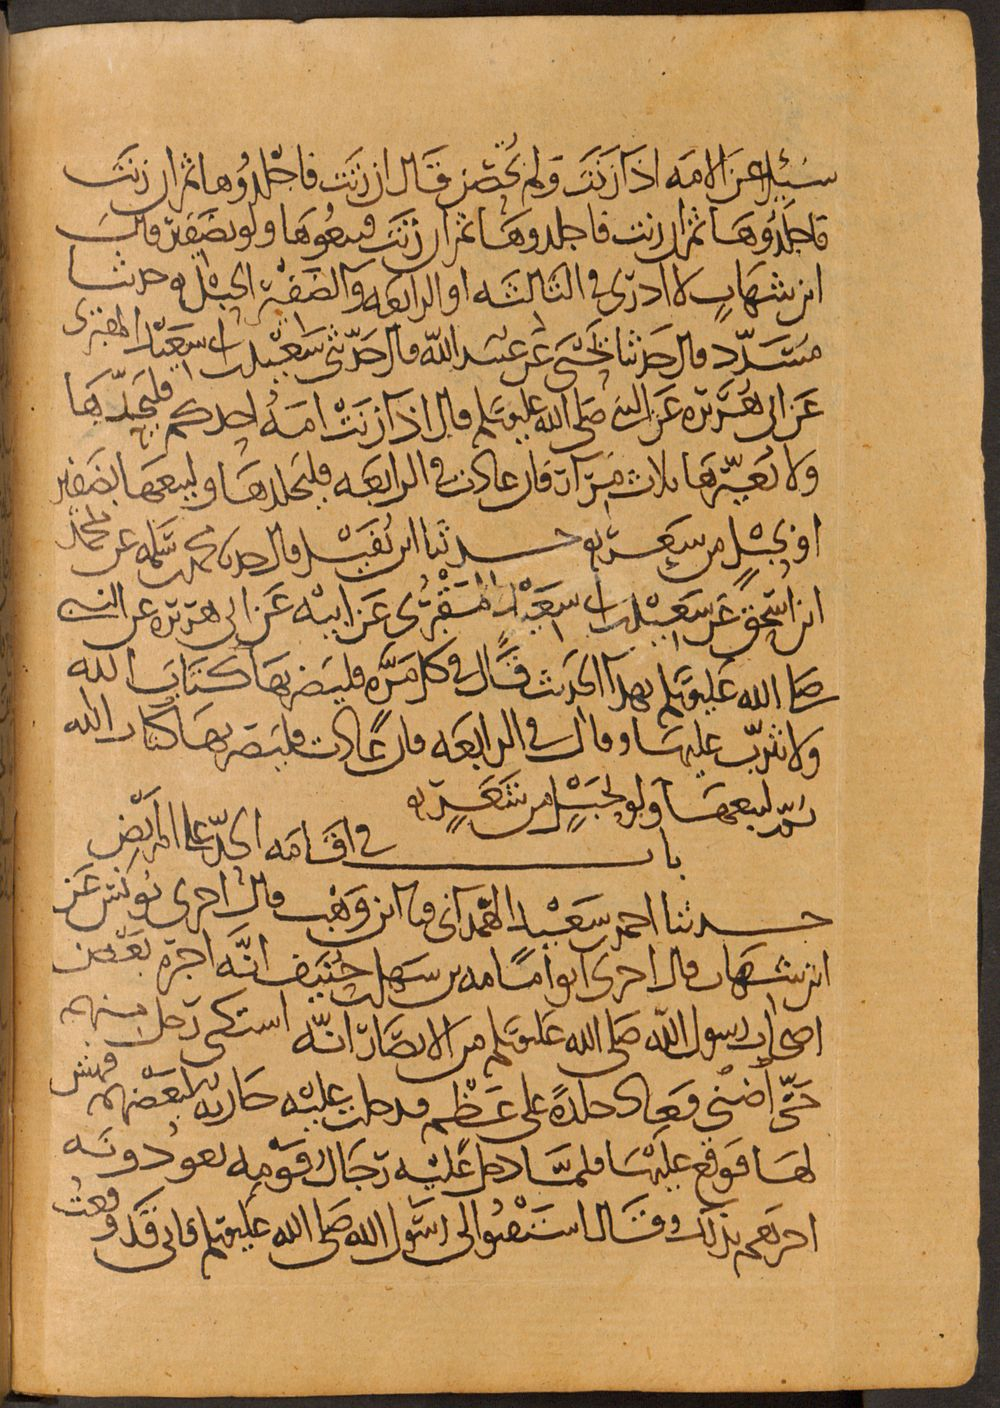 سُئل عن الامه اذا زنت ولم تحصن قال ان زنت فاجلدوها ثم ان زنت
فاجلدوها ثم ان زنت فاجلدوها ثم ان زنت فبيعوها ولو بضفير قال
ابن شهاب لا ادري في الثالثه او الرابعه والضفير الحبل حدثنا
مسدد قال حدثنا يحيى عن عبيد الله قال حدثني سعيد بن ابي سعيد المقبري
عن ابي هريره عن النبي صلى الله عليه وسلم قال اذا زنت امه احدكم فليحدها
ولا يعيرها ثلاث مرات فان عادت في الرابعه فليجلدها وليبعها بضفير
او بحبل من شعر حدثنا ابن نفيل قال حدثنا محمد بن سلمه عن محمد
ابن اسحق عن سعيد بن ابي سعيد المقبري عن ابيه عن ابي هريره عن النبي
صلى الله عليه وسلم بهذا الحديث قال في كل مره فليضربها كتاب الله
ولا يثرب عليها وقال في الرابعه فان عادت فليضربها كتاب الله
ثم ليبعها ولو بحبل من شعر
باب في اقامه الحد على المريض
حدثنا احمد بن سعيد الهمداني قال ابن وهب قال اخبرني يونس عن
ابن شهاب قال اخبرني ابو امامه بن سهل بن حنيف انه اخبره بعض
اصحاب رسول الله صلى الله عليه وسلم من الانصار انه اشتكى رجل منهم
حتى اضنى فعاد جلده على عظم فدخلت عليه جاريه لبعضهم فهش
لها فوقع عليها فلما دخل عليه رجال قومه يعودونه
اخبرهم بذلك وقال استفتوا لي رسول الله صلى الله عليه وسلم فاني قد وقعت